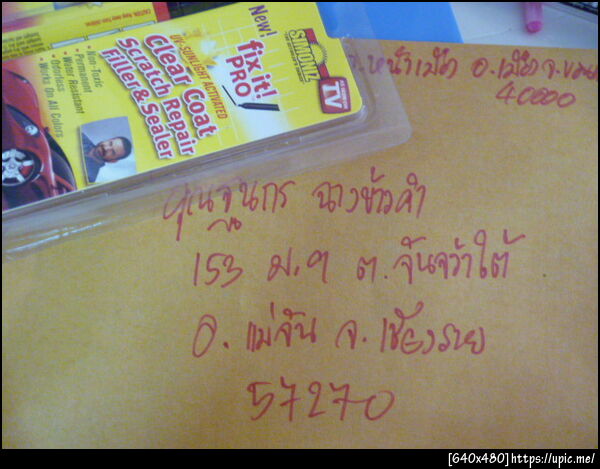 CAUTION:
New!
fix it!
PRO
SIMONIZ
AS SEEN ON
TV
UV-SUNLIGHT ACTIVATED
Clear Coat
Scratch Repair
Filler & Sealer
• Non-Toxic
• Permanent
• Water Resistant
• Odorless
• Works On All Colors
อ.เมือง จ.ขอน
40000
ฉางข้าวคำ
153 ม.9 ต.จันจว้าใต้
อ. แม่จัน จ. เชียงราย
57270
[640x480]https://upic.me/